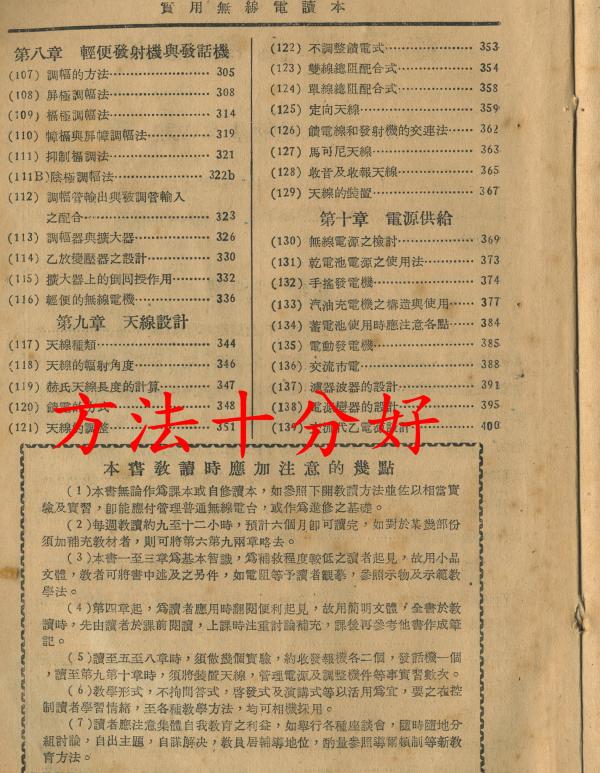 實用無線電讀本
第八章 輕便發射機與發話機
(107) 調幅的方法 305
(108) 屏極調幅法 308
(109) 柵極調幅法 314
(110) 幛柵與屏幛調幅法 319
(111) 抑制柵調法 321
(111B) 陰極調幅法 322b
(112) 調幅管輸出與被調管輸入
之配合 323
(113) 調幅器與擴大器 326
(114) 乙放變壓器之設計 330
(115) 擴大器上的倒回授作用 332
(116) 輕便的無線電機 336
第九章 天線設計
(117) 天線種類 344
(118) 天線的輻射角度 346
(119) 赫氏天線長度的計算 347
(120) 饋電的方式 348
(121) 天線的調整 351
(122) 不調整饋電式 353
(123) 雙線總阻配合式 354
(124) 單線總阻配合式 358
(125) 定向天線 359
(126) 饋電線和發射機的交連法 362
(127) 馬可尼天線 363
(128) 收音及收報天線 365
(129) 天線的裝置 367
第十章 電源供給
(130) 無線電源之檢討 369
(131) 乾電池電源之使用法 373
(132) 手搖發電機 374
(133) 汽油充電機之構造與使用 377
(134) 蓄電池使用時應注意各點 384
(135) 電動發電機 385
(136) 交流市電 388
(137) 濾波器的設計 391
(138) 電源變壓器的設計 395
(139) 交流代乙電設計 400
方法十分好
本書教讀時應加注意的幾點
(1)本書無論作為課本或自修讀本,如參照下開教讀方法並佐以相當實
驗及實習,即能應付管理普通無線電台,或作為進修之基礎。
(2)每週教讀約九至十二小時,預計六個月即可讀完,如對於某幾部份
須加補充教材者,則可將第六第九兩章略去。
(3)本書一至三章為基本智識,為補救程度較低之讀者起見,故用小品
文體,教者可將書中述及之另件,如電阻等予讀者觀摹,參照示物及示範教
學法。
(4)第四章起,為讀者應用時翻閱便利起見,故用簡明文體,全書於教
讀時,先由讀者於課前閱讀,上課時注重討論補充,課後再參考他書作成筆
記。
(5)讀至五至八章時,須做幾個實驗,約收發報機各二個,發話機一個
,讀至第九第十章時,須將裝置天線,管理電源及調整機件等事實習數次。
(6)教學形式,不拘問答式,啓發式及演講式等以活用為宜,要之在控
制讀者學習情緒,至各種教學方法,均可相機採用。
(7)讀者應注意集體自我教育之利益,如舉行各種座談會,隨時隨地分
組討論,自出主題,自謀解決,教員居輔導地位,酌量參照導爾頓制等新教
育方法。